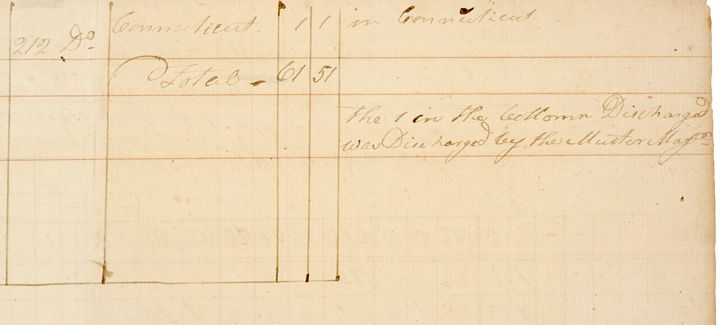 Connecticut. 1 1 in Connecticut
212 Do
Total - 61 51
the 1 in the Collomn Discharged
was Discharged by the Muster Mas